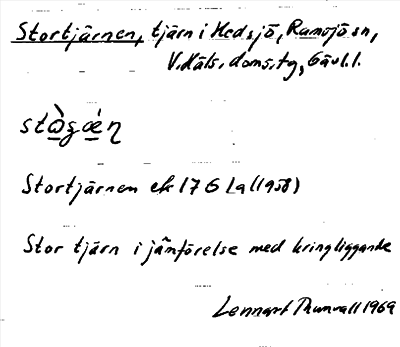 Stortjärnen, tjärn i Hedsjö, Ramsjö sn,
V. Häls. doms.tg, Gävl.l.
stɔ̀gǽŋ
Stortjärnen ek 17 G 1a (1958)
Stor tjärn i jämförelse med kringliggande
Lennart Thunvall 1969